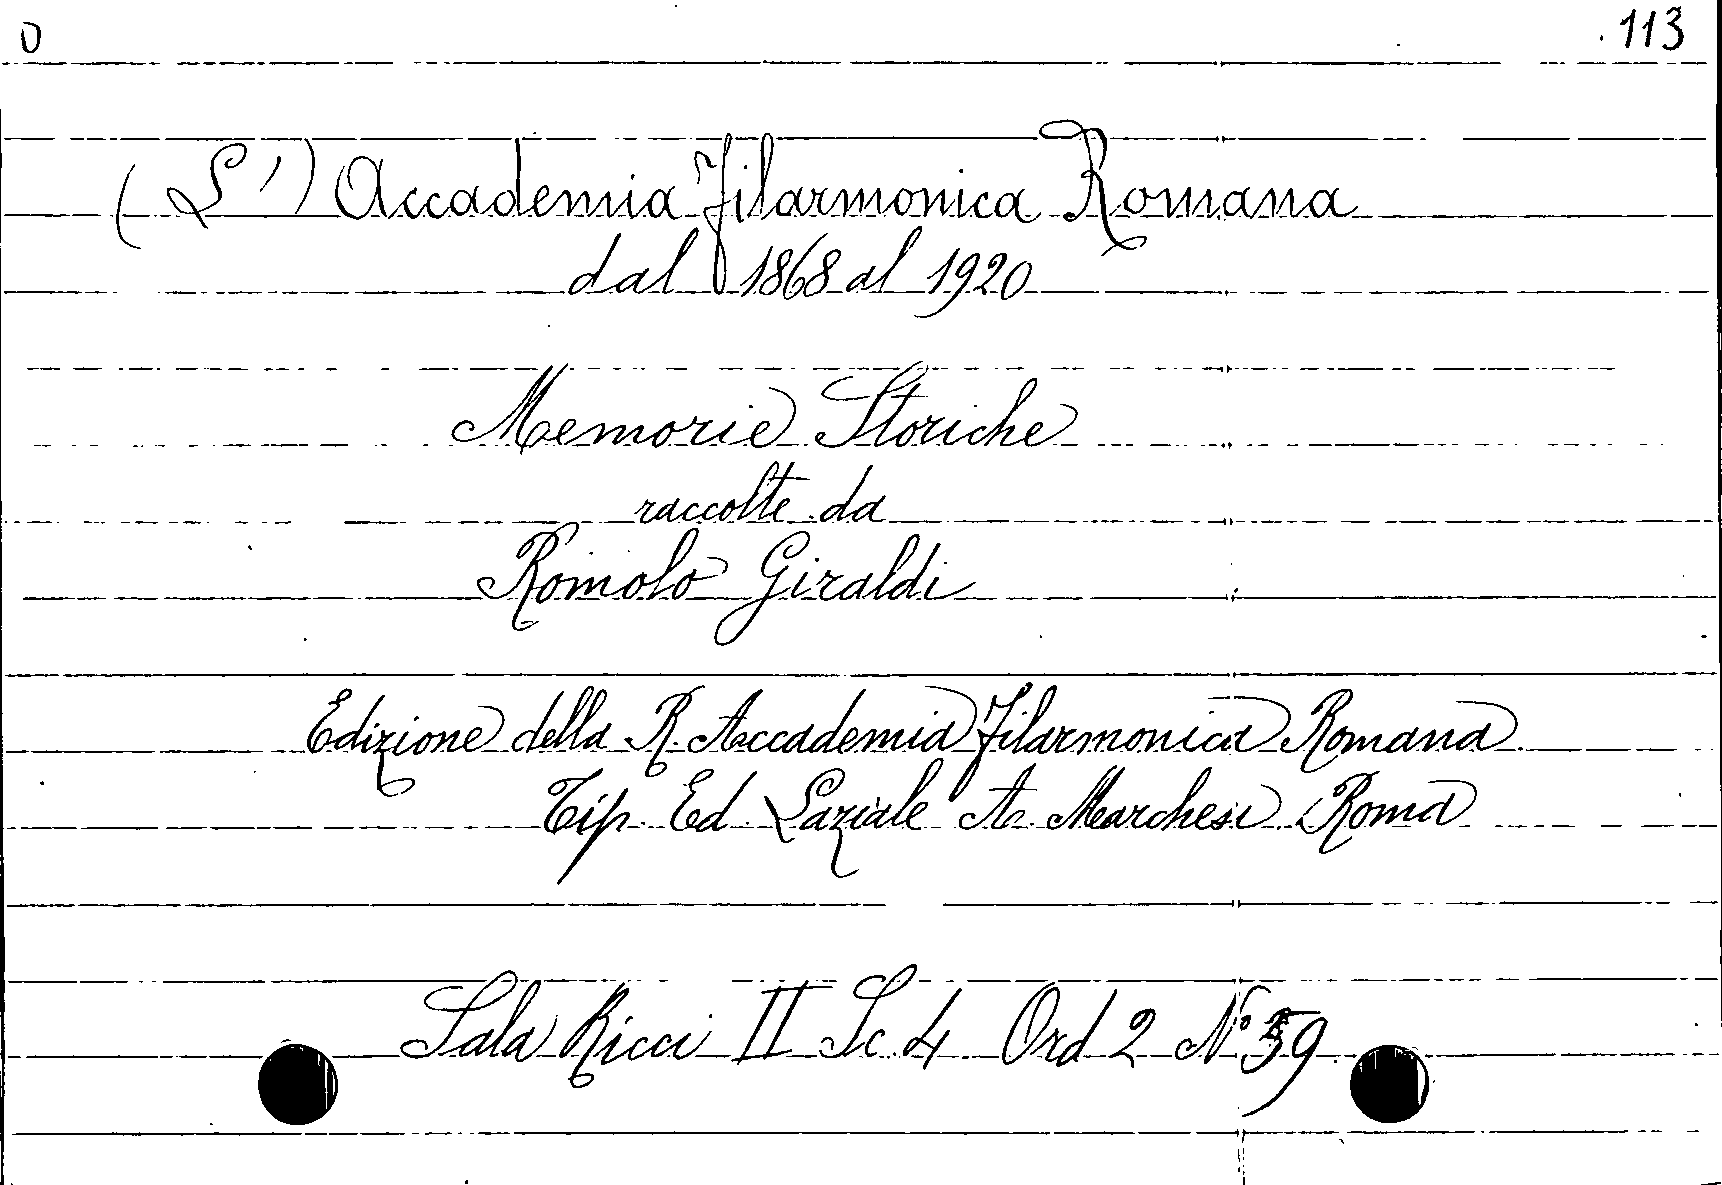 0 113
(L') Accademia Filarmonica Romana
dal 1868 al 1920
Memorie Storiche
raccolte da
Romolo Giraldi
Edizione della R. Accademia Filarmonica Romana
Tip. Ed. Laziale A. Marchesi Roma
Sala Ricci II Sc. 4 Ord 2 N° 59